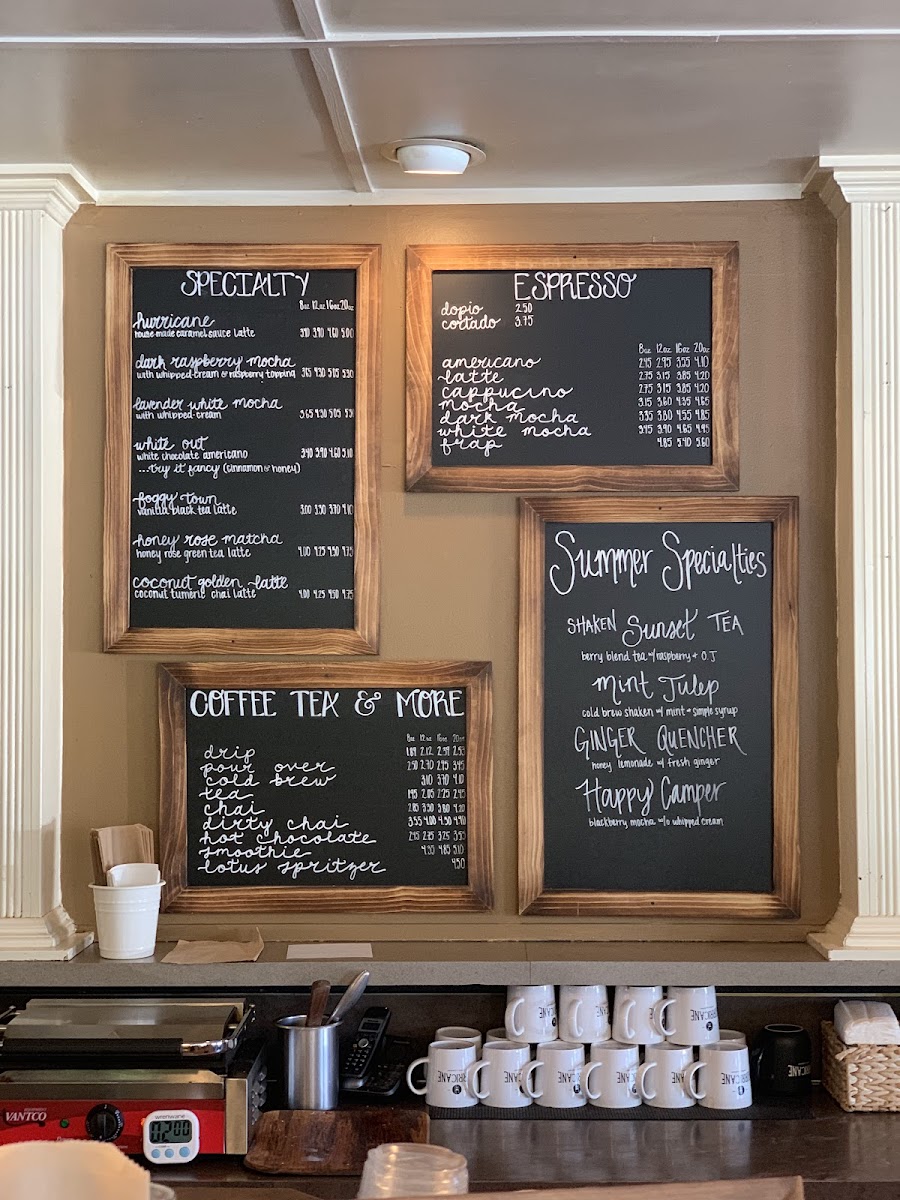 SPECIALTY
8oz 12oz 16oz 20oz
hurricane
house-made caramel sauce latte 3.40 3.90 4.60 5.00
dark raspberry mocha
with whipped cream & raspberry topping 3.65 4.30 5.05 5.30
lavender white mocha
with whipped cream 3.65 4.30 5.05 5.30
white out
white chocolate americano 3.40 3.90 4.60 5.10
...try it fancy (cinnamon & honey)
foggy town
vanilla black tea latte 3.00 3.50 3.70 4.10
honey rose matcha
honey rose green tea latte 4.00 4.25 4.50 4.75
coconut golden latte
coconut tumeric chai latte 4.00 4.25 4.50 4.75
ESPRESSO
dopio 2.50
cortado 3.75
8oz 12oz 16oz 20oz
americano 2.45 2.95 3.55 4.10
latte 2.75 3.15 3.85 4.20
cappucino 2.75 3.15 3.85 4.20
mocha 3.15 3.60 4.35 4.65
dark mocha 3.35 3.80 4.55 4.85
white mocha 3.45 3.90 4.65 4.95
frap 4.85 5.40 5.60
COFFEE TEA & MORE
8oz 12oz 16oz 20oz
drip 1.89 2.12 2.39 2.53
pour over 2.50 2.70 2.95 3.45
cold brew 3.10 3.70 4.10
tea 1.95 2.05 2.25 2.45
chai 2.85 3.30 3.80 4.20
dirty chai 3.55 4.00 4.50 4.90
hot chocolate 2.45 2.75 3.25 3.55
smoothie 4.30 4.85 5.10
lotus spritzer 4.50
Summer Specialties
SHAKEN Sunset TEA
berry blend tea w/ raspberry + O.J
Mint Julep
cold brew shaken w/ mint + simple syrup
GINGER QUENCHER
honey lemonade w/ fresh ginger
Happy Camper
blackberry mocha w/o whipped cream
VANTCO
02:00